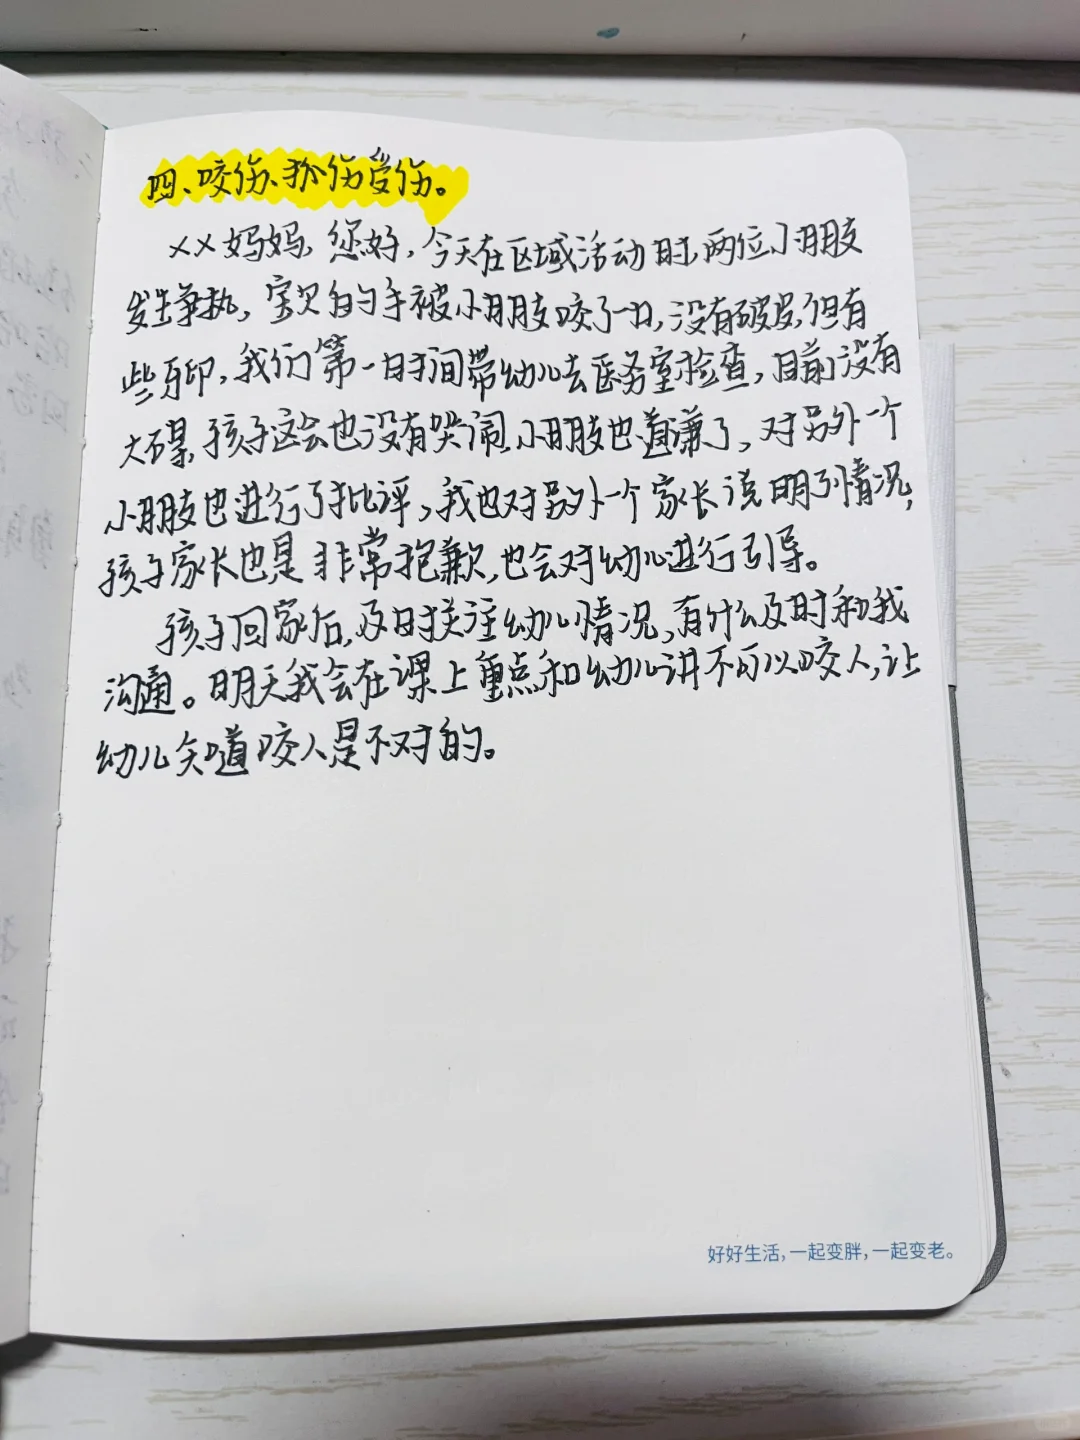 四、咬伤、抓伤受伤。
××妈妈,您好,今天在区域活动时,两位小朋友
发生争执,宝贝的手被小朋友咬了一口,没有破皮,但有
些牙印,我们第一时间带幼儿去医务室检查,目前没有
大碍,孩子这会也没有哭闹,小朋友也道谦了,对另外一个
小朋友也进行了批评,我也对另外一个家长说明了情况,
孩子家长也是非常抱歉,也会对幼儿进行引导。
孩子回家后,及时关注幼儿情况,有什么及时和我
沟通。明天我会在课上重点和幼儿讲不可以咬人,让
幼儿知道咬人是不对的。
好好生活,一起变胖,一起变老。